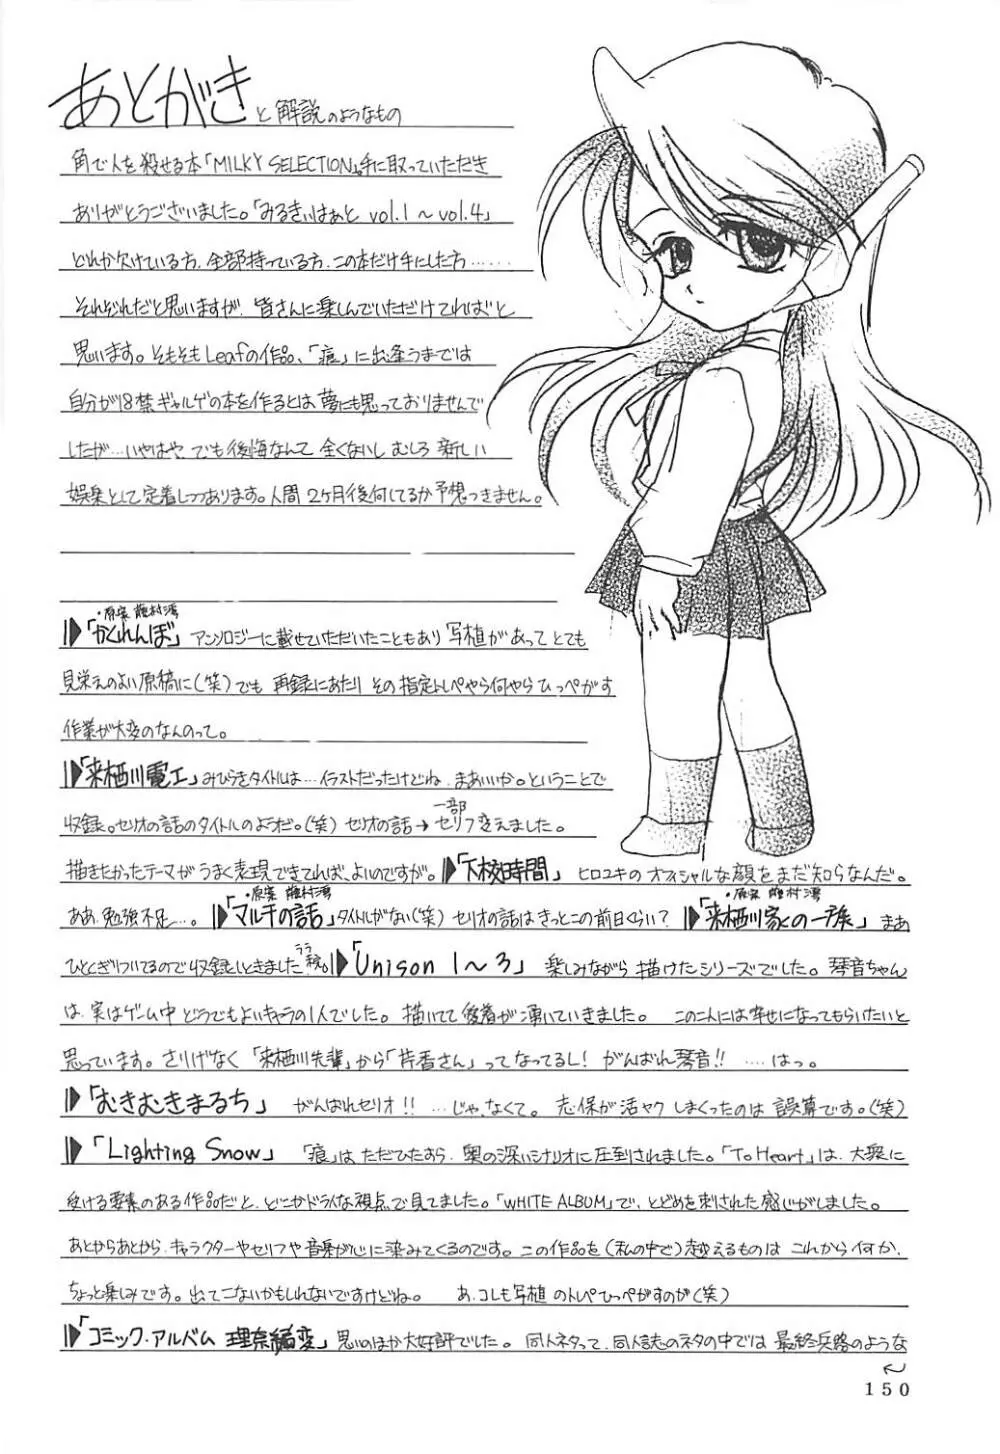 あとがき と解説のようなもの
角で人を殺せる本「MILKY SELECTION」手に取っていただき
ありがとうございました。「みるきぃはぁと vol.1〜vol.4」
どれか欠けている方、全部持っている方、この本だけ手にした方……
それぞれだと思いますが、皆さんに楽しんでいただけてればと
思います。そもそもLeafの作品、「痕」に出逢うまでは
自分が18禁ギャルゲの本を作るとは夢にも思っておりませんで
したが…いやはや でも後悔なんて全くないし むしろ新しい
娯楽として定着しつつあります。人間2ヶ月後何してるか予想つきません。
・原案 藤村湾
「かくれんぼ」 アンソロジーに載せていただいたこともあり 写植があって とても
見栄えのよい原稿に(笑) でも 再録にあたり その指定トレペやら何やら ひっぺがす
作業が大変のなんのって。
「来栖川電工」みひらきタイトルは…イラストだったけどね、まあいいか。ということで
収録。セリオの話のタイトルのようだ。(笑) セリオの話→一部セリフ変えました。
描きたかったテーマがうまく表現できてれば、よいのですが。「下校時間」 ヒロユキのオフィシャルな顔をまだ知らなんだ。
・原案 藤村湾 ・原案 藤村湾
ああ、勉強不足…。「マルチの話」タイトルがない(笑) セリオの話はきっとこの前日くらい? 「来栖川家の一族」 まあ
ひとくぎりついてるので収録しときました 「Unison 1〜3」 楽しみながら描けたシリーズでした。琴音ちゃん
は、実はゲーム中どうでもよいキャラの1人でした。描いてて愛着が湧いていきました。 このこには幸せになってもらいたいと
思っています。さりげなく「来栖川先輩」から「芹香さん」ってなってるし! がんばれ琴音!! ……はっ。
「むきむきまるち」 がんばれセリオ!! …じゃ、なくて。 志保が活ヤクしまくったのは誤算です。(笑)
「Lighting Snow」 「痕」は、ただひたすら、奥の深いシナリオに圧倒されました。「To Heart」は、大衆に
受ける要素のある作品だと、どこかドライな視点で見てました。「WHITE ALBUM」で、とどめを刺された感じがしました。
あとからあとから、キャラクターやセリフや音楽が心に染みてくるのです。この作品を(私の中で)越えるものは これから何か、
ちょっと楽しみです。出てこないかもしれないですけどね。 あ、コレも写植のトレペひっぺがすのが(笑)
「コミック・アルバム 理奈編変」 思いのほか大好評でした。同人ネタって、同人誌のネタの中では 最終兵器のような
150